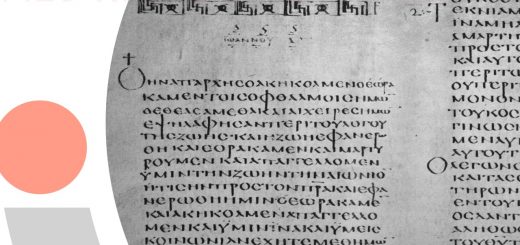 ΙΩΑΝΝΟΥ Α
ΟΗΝΑΠΑΡΧΗϹΟΑΚΗΚΟΑΜΕΝΟΕΩΡΑ
ΚΑΜΕΝΤΟΙϹΟΦΘΑΛΜΟΙϹΗΜΩ
ΟΕΘΕΑϹΑΜΕΘΑΚΑΙΑΙΧΕΙΡΕϹΗΜΩ
ΕΨΗΛΑΦΗϹΑΝΠΕΡΙΤΟΥΛΟΓΟΥ
ΤΗϹΖΩΗϹ·ΚΑΙΗΖΩΗΕΦΑΝΕΡ
ΘΗΚΑΙΕΟΡΑΚΑΜΕΝΚΑΙΜΑΡΤΥ
ΡΟΥΜΕΝΚΑΙΑΠΑΓΓΕΛΛΟΜΕΝ
ΥΜΙΝΤΗΝΖΩΗΝΤΗΝΑΙΩΝΙΟ
ΗΤΙϹΗΝΠΡΟϹΤΟΝΠΡΑΚΑΙΕΦΑ
ΝΕΡΩΘΗΗΜΙΝΟΕΩΡΑΚΑΜΕ
ΚΑΙΑΚΗΚΟΑΜΕΝΑΠΑΓΓΕΛΛΟ
ΜΕΝΚΑΙΥΜΙΝΙΝΑΚΑΙΥΜΕΙϹ
ΚΟΙΝΩΝΙΑΝΕΧΗΤΕΜΕΘΗΜΩ
ΙΝΑΜΗΑ
ΑΜΑΡΤΗ
ΠΡΟϹΤΟ
ΚΑΙΑΥΤΟ
ΟΥΠΕΡΙΤ
ΜΟΝΟΝ
ΤΟΥΚΟϹ
ΓΙΝΩϹΚ
ΜΕΝΑΥ
ΑΥΤΟΥΤ
ΟΛΕΓΩΝ